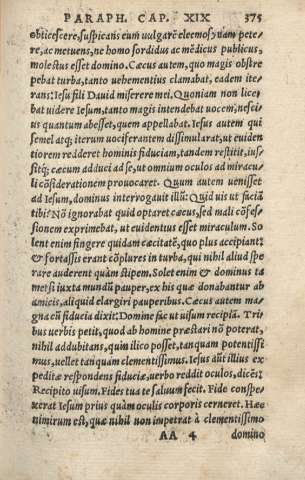 PARAPH. CAP. XIX 375
obticescere, suspicans eum uulgarē eleemosynam pete
re, ac metuens, ne homo sordidus ac mēdicus publicus,
molestus esset domino. Cæcus autem, quo magis obstre
pebat turba, tanto uehementius clamabat, eadem ite-
rans: Iesu fili Dauid miserere mei. Quoniam non lice
bat uidere Iesum, tanto magis intendebat uocem, nesci-
us quantum abesset, quem appellabat. Iesus autem qui
semel atq; iterum uociferantem dissimularat, ut euiden
tiorem redderet hominis fiduciam, tandem restitit, ius-
sitq; cæcum adduci ad se, ut omnium oculos ad miracu
li cōsiderationem prouocaret. Quum autem uenisset
ad Iesum, dominus interrogauit illū: Quid uis ut faciā
tibi? Nō ignorabat quid optaret cæcus, sed mali cōfes-
sionem exprimebat, ut euidentius esset miraculum. So
lent enim fingere quidam cæcitatē, quo plus accipiant:
& fortassis erant cōplures in turba, qui nihil aliud spe
rare auderent quàm stipem. Solet enim & dominus ta
metsi iuxta mundū pauper, ex his quæ donabantur ab
amicis, aliquid elargiri pauperibus. Cæcus autem ma-
gna cū fiducia dixit: Domine fac ut uisum recipiā. Tri
bus uerbis petit, quod ab homine præstari nō poterat,
nihil addubitans, quin ilico posset, tanquam potentissi
mus, uellet tanquam clementissimus. Iesus aūt illius ex
peditæ respondens fiduciæ, uerbo reddit oculos, dicēs:
Recipito uisum. Fides tua te saluum fecit. Fide conspe-
xerat Iesum prius quàm oculis corporis cerneret. Hæc
nimirum est, quæ nihil non impetrat à clementissimo
AA 4 domino